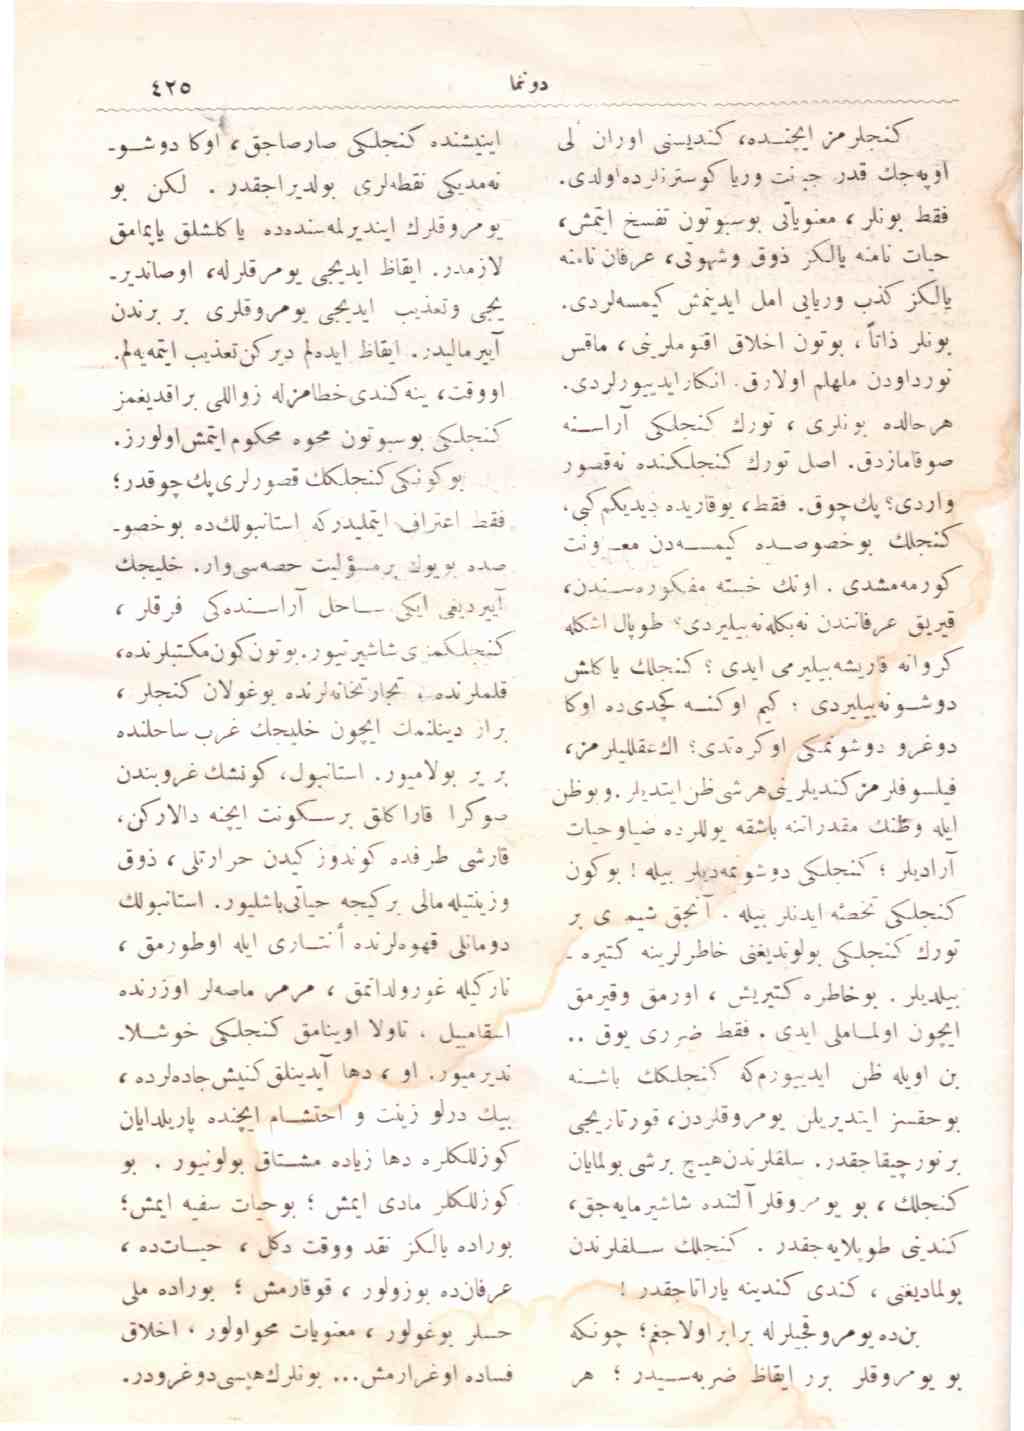 دونما
٤٢٥
كنجلرمز ایچنـده، كندیسنی اوران الی
اوپه‌جك قدر جبانت وریا كوسترنلرده اولدی.
فقط بونلر ، معنویاتی بوسبوتون تفسخ ایتمش،
حیات نامنه یالكز ذوق وشهوتی، عرفان نامنه
یالكز كذب وریایی امل ایدینمش كیمسه‌لردی.
بونلر ذاتاً ، بوتون اخلاق اقنوملرینی ، ماقس
نورداودن ملهم اولارق، انكار ایدییورلردی.
هرحالده بونلری ، تورك كنجلكی آراسـنه
صوقامازدق. اصل تورك كنجلكنده نه‌قصور
واردی؟ پك چوق. فقط، یوقاریده دیدیكم كبی،
كنجلك بوخصوصـده كیمسـه‌دن معـاونت
كورمه‌مشدی . اونك خسته مفكوره‌سـندن،
قیریق عرفانندن نه‌بكله‌نه‌بیلیردی؟ طوپال اشكله
كروانه قاریشه‌بیلیرمی ایدی ؟ كنجلك یاكلش
دوشـونه‌بیلیردی ؛ كیم اوكنـه كچدی‌ده اوكا
دوغرو دوشونمكی اوكره‌تدی؟ اك عقللیلرمز،
فیلسوفلرمز كندیلرینی هرشی ظن ایتدیلر. وبوظن
ایله وطنك مقدراتنه باشقه یوللرده ضیاوحیات
آرادیلر ؛ كنجلكی دوشونمه‌دیلر بیله ! بوكون
كنجلكی تخطئه ایدنلر بیله ، آنجق شیمدی بر
تورك كنجلكی بولوندیغنی خاطرلرینه كتیره ـ
بیلدیلر . بوخاطره كتیریش ، اورمق وقیرمق
ایچون اولمـاملی ایدی . فقط ضرری یوق ..
بن اویله ظن ایدییورم‌كه كنجلكك باشـنه
بوحقسز ایندیریلن یومروقلردن، قورتاریجی
برنور چیقاجقدر. سلفلرندن هیچ برشی بولمایان
كنجلك ، بو یومروقلر آلتنده شاشیرمایه‌جق،
كندینی طوپلایه‌جقدر . كنجلك سـلفلرندن
بولمادیغنی ، كندی كندینه یاراتاجقدر !
بن‌ده یومروقجیلرله برابر اولاجغم؛ چونكه
بو یومروقلر برر ایقاظ ضربه‌سـیدر ؛ هر
اینیشنده كنجلـكی صارصاجق ، اوكا دوشـوـ
نه‌مدیكی نقطه‌لری بولدیراجقدر . لـكن بو
یومروقلرك ایندیرلمه‌سنده‌ده یاكلشلق یاپمامق
لازمدر. ایقاظ ایدیجی یومرقلرله، اوصاندیرـ
یجی وتعذیب ایدیجی یومروقلری بر برندن
آییرمالیدر. ایقاظ ایده‌لم دیركن تعذیب ایتمه‌یه‌لم.
اووقت، ینه‌كندی‌خطامزله زواللی براقدیغمز
كنجلـكی بوسبوتون محوه محكوم ایتمش اولورز.
بوكونكی كنجلكك قصورلری پك چوقدر؛
فقط اعتراف ایتملیدركه استانبولك‌ده بوخصوـ
صده بویوك برمسؤلیت حصه‌سی‌وار. خلیجك
آییردیغی ایكی سـاحل آراسـنده‌كی فرقلر ،
كنجلكمزی شاشیرتیور. بوتون‌كون‌مكتبلرنده،
قلملرنده ، تجارتخانه‌لرنده بوغولان كنجلر ،
براز دینلنمك ایچون خلیجك غرب ساحلنده
بر یر بولامیور. استانبول، كونشك غروبندن
صوكرا قاراكلق برسـكونت ایچنه دالاركن،
قارشی طرفده كوندوزكیدن حرارتلی ، ذوق
وزینتیله‌مالی بركیجه حیاتی‌باشلیور. استانبولك
دومانلی قهوه‌لرنده أنتـاری ایله اوطورمق ،
ناركیله غورولداتمق ، مرمر ماصه‌لر اوزرنده
اسقامبیل ، تاولا اوینامق كنجلـكی خوشـلاـ
ندیرمیور. او ، دها آیدینلق كنیش جاده‌لرده ،
بیك درلو زینت و احتشـام ایچنده پاریلدایان
كوزللكلره دها زیاده مشـتاق بولونیور . بو
كوزللكلر مادی ایمش ؛ بوحیات سفیه ایمش؛
بوراده یالكز نقد ووقت دكل ، حیـات‌ده ،
عرفان‌ده بوزولور ، قوقارمش ؛ بوراده ملی
حسلر بوغولور ، معنویات محواولور ، اخلاق
فساده اوغرارمش... بونلرك هپسی‌دوغرودر.